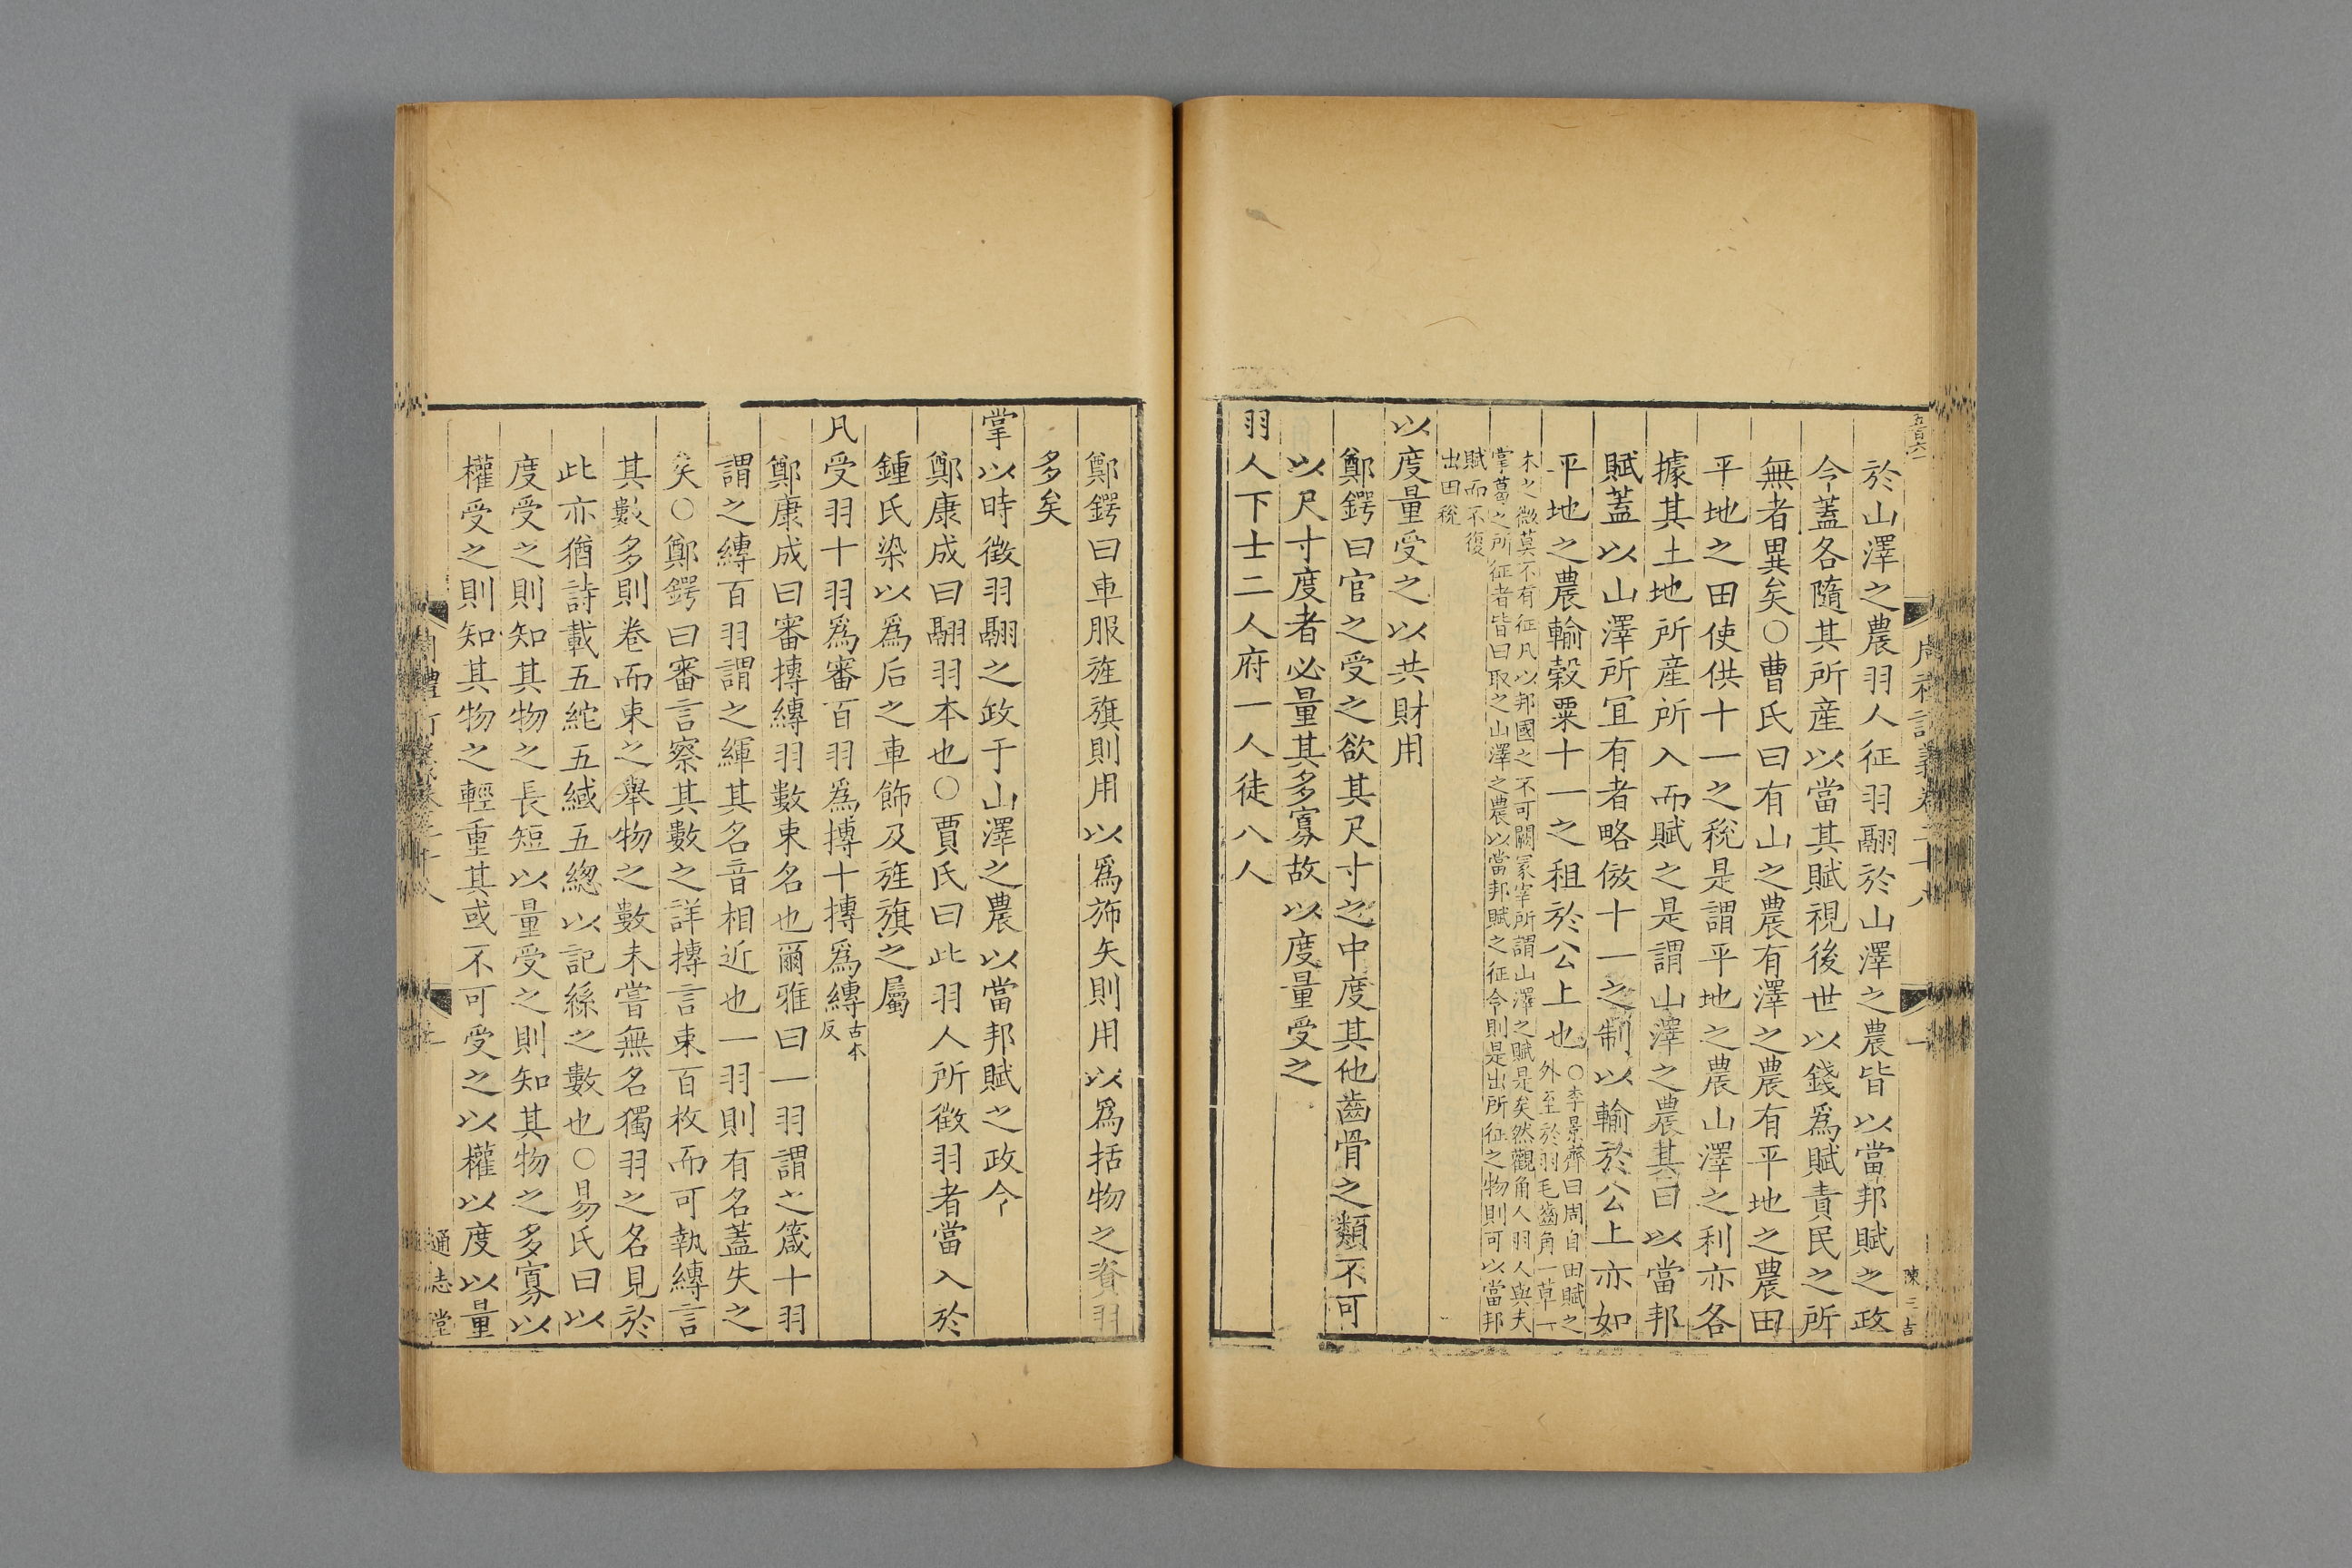 五百六一
周禮訂義卷二十八
一
陳三吉
於山澤之農羽人征羽翮於山澤之農皆以當邦賦之政
令蓋各隨其所産以當其賦視後世以錢爲賦責民之所
無者異矣○曹氏曰有山之農有澤之農有平地之農田
平地之田使供十一之稅是謂平地之農山澤之利亦各
據其土地所産所入而賦之是謂山澤之農其曰以當邦
賦蓋以山澤所宜有者略倣十一之制以輸於公上亦如
平地之農輸穀粟十一之租於公上也
○李景齊曰周自田賦之
外至於羽毛齒角一草一
木之微莫不有征凡以邦國之不可闕冢宰所謂山澤之賦是矣然觀角人羽人與夫
掌葛之所征者皆曰取之山澤之農以當邦賦之征令則是出所征之物則可以當邦
賦而不復
出田稅
以度量受之以共財用
鄭鍔曰官之受之欲其尺寸之中度其他齒骨之類不可
以尺寸度者必量其多寡故以度量受之
羽人下士二人府一人徒八人
鄭鍔曰車服旌旗則用以爲斾矢則用以爲括物之資羽
多矣
掌以時徵羽翮之政于山澤之農以當邦賦之政令
鄭康成曰翮羽本也○賈氏曰此羽人所徵羽者當入於
鍾氏染以爲后之車飾及旌旗之屬
凡受羽十羽爲審百羽爲摶十摶爲縛
古本
反
鄭康成曰審摶縛羽數束名也爾雅曰一羽謂之箴十羽
謂之縛百羽謂之緷其名音相近也一羽則有名蓋失之
矣○鄭鍔曰審言察其數之詳摶言束百枚而可執縛言
其數多則卷而束之舉物之數未嘗無名獨羽之名見於
此亦猶詩載五紽五緎五緫以記絲之數也○易氏曰以
度受之則知其物之長短以量受之則知其物之多寡以
權受之則知其物之輕重其或不可受之以權以度以量
通志堂